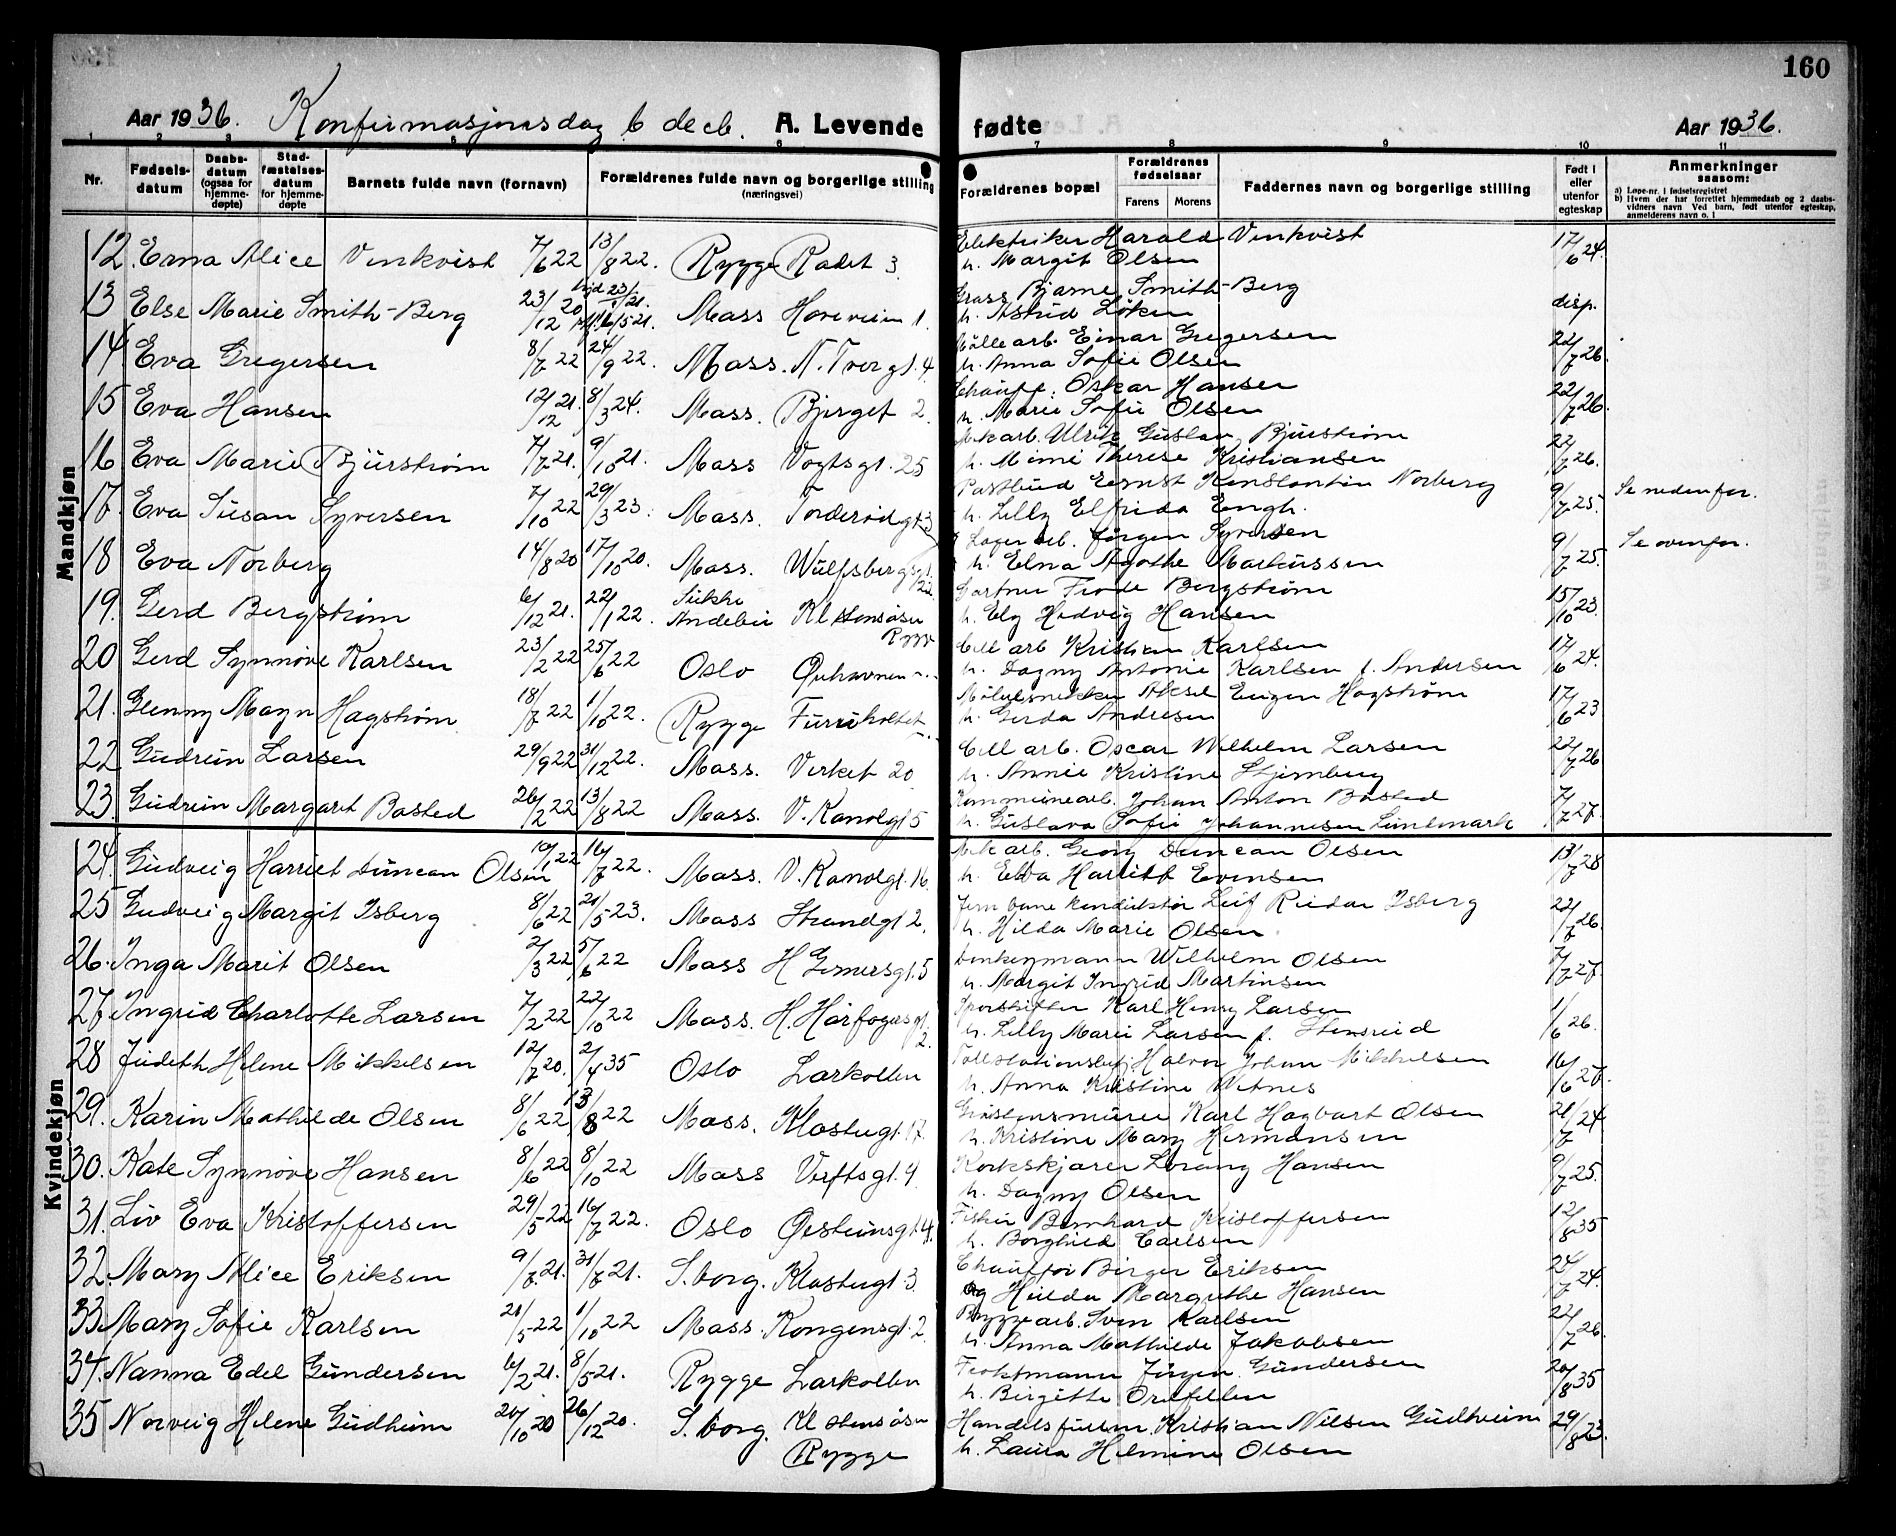 160
Aar 1936. Konfirmasjonsdag 6 decb. A. Levende fødte Aar 1936.
1 2 3 5 6 7 8 9 10 11
Nr. Fødsels-datum Daabs-datum (ogsaa for hjemme-døpte) Stad-fæstelses-datum for hjemme-døpte Barnets fulde navn (fornavn) Forældrenes fulde navn og borgerlige stilling (næringsvei) Forældrenes bopæl Forældrenes fødselsaar Farens Morens Faddernes navn og borgerlige stilling Født i eller utenfor egteskap Anmerkninger saasom:
a) Løpe-nr. i fødselsregistret
b) Hvem der har forrettet hjemmedaab og 2 daabs-vidners navn Ved barn, født utenfor egteskap, anmelderens navn o. l
Mandkjøn
12. Erna Alice Vinkvist 7/6 22 13/8 22. Rygge Radet 3 Elektriker Harald Vinkvist 17/6 24.
h. Margit Olsen
13 Else Marie Smith-Berg 23/12 20 Mass Horeveien 1. Gross Bjarne Smith-Berg disp.
h. Astrid Løken
14 Eva Gregersen 8/7 22 24/9 22. Mass. N. Tvergt. 4 Møllearb. Einar Gregersen 22/7 26.
h. Anna Sofie Olsen
15 Eva Hansen 12/12 21. 8/3 24. Mass. Bjerget 2. Chauff. Oskar Hansen 22/7 26.
h. Marie Sofie Olsen
16 Eva Marie Bjurstrøm 7/7 21. 9/10 21. Mass Vogtsgt. 25 Mek arb. Ulrik Gustav Bjurstrøm 22/7 26.
h. Mimi Therese Kristiansen
17. Eva Susan Syversen 7/10 22 29/3 23. Mass. Torderødgt 3 Postbud Ernst Konstantin Norberg 9/7 25. Se nedenfor.
h. Lilly Elfrida Engh.
18 Eva Norberg 14/8 20 17/10 20. Mass. Wulfsbergsgt. Lager arb. Jørgen Syversen 9/7 25. Se ovenfor.
h. Elna Agathe Markussen
19. Gerd Bergstrøm 6/12 21. 22/1 22. Andebu Kl stensåsen Rygge Gartner Frode Bergstrøm 15/10 23.
h. Ely Hedvig Hansen
20 Gerd Synnøve Karlsen 23/2 22 25/6 22 Oslo Cell arb Kristian Karlsen 17/6 24.
h. Dagny Antonie Karlsen f. Andersen
21. Glenny Mayn Hagstrøm 18/7 22 1/10 22. Rygge Furuholtet Møbelsnekker Aksel Eugen Hagstrøm 17/6 23
h. Gerda Andresen
22 Gudrun Larsen 29/9 22 31/12 22. Mass. Verket 20 Cell arb. Oscar Wilhelm Larsen 22/7 26
h. Annie Kristine Stjernberg
23. Gudrun Margart Basted 26/2 22 13/8 22 Mass. V. Kanalgt 5 Kommunearb. Johan Anton Basted 7/7 27.
h. Gustava Sofie Johannesen Lundmark
Kvindekjøn
24. Gudveig Harriet Duncan Olsen 10/1 22 16/7 22. Mass. V. Kanalgt. 16. Mek arb. Georg Duncan Olsen 13/7 28
h. Ebba Harriet Evensen
25 Gudveig Margit Isberg 8/6 22 21/5 23. Mass Strandgt 2. Jernbanekonduktør Leif Reidar Isberg 22/7 26.
h. Hilda Marie Olsen
26. Inga Marit Olsen 2/3 22 5/6 22 Mass H Gernersgt. 5 Donkeymann Wilhelm Olsen 7/7 27.
h. Margit Ingrid Martinsen
27 Ingrid Charlotte Larsen 7/2 22 22/10 22 Mass. H. Hårfagersgt. 2. Sporskifter Karl Henry Larsen 1/6 26.
h. Lilly Marie Larsen f. Stensrud
28 Judith Helene Mikkelsen 12/7 20. 2/4 35 Oslo Larkollen Tollstationsbetj Halvor Johan Mikkelsen 16/6 27.
h. Anna Kristine Witnes
29. Karin Mathilde Olsen 8/6 22 13/8 22 Mass. Klostergt. 17. Gråstensmurer Karl Hagbart Olsen 21/7 24
h. Kristine Mary Hermansen
30. Kate Synnøve Hansen 8/6 22 8/10 22 Mass Verftsgt. 4. Korkskjærer Lorang Hansen 9/7 25.
h. Dagny Olsen
31. Liv Eva Kristoffersen 29/5 22 16/7 22. Oslo Øisteinsgt. 4. Fisker Bernhard Kristoffersen 12/8 35
h. Borghild Carlsen
32. Mary Alice Eriksen 9/7 21. 31/7 21. S. borg. Klostergt. 3 Chauffør Birger Eriksen 24/7 24.
og Hilda Margrethe Hansen
33. Mary Sofie Karlsen 21/5 22 1/10 22 Mass. Kongensgt. 2. Byggearb. Sven Karlsen 22/7 26.
h. Anna Mathilde Jakobsen
34. Nanna Edel Gundersen 6/2 21. 8/5 21. Rygge Larkollen Fraktmann Jørgen Gundersen 20/8 35
h. Birgitte
35 Norveig Helene Gudheim 20/10 20 26/12 20. S. borg. Kl stensåsen Rygge Handelsfullm. Kristian Nilsen Gudheim 29/8 23.
h. Laura Helmine Olsen